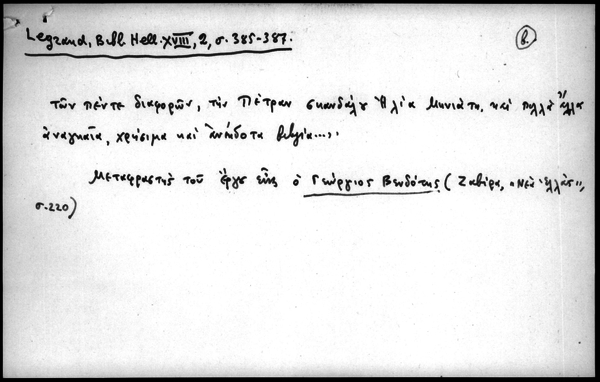 Legrand, Bibl. Hell. XVIII, 2, σ. 385-387.
β.
τῶν πέντε διαφορῶν, τὴν Πέτραν σκανδάλου Ἠλία Μηνιάτη, καὶ πολλὰ ἄλλα
ἀναγκαῖα, χρήσιμα καὶ ἀνέκδοτα βιβλία...».
Μεταφραστὴς τοῦ ἔργου εἶναι ὁ Γεώργιος Βενδότης (Ζαβίρα, «Νέα Ἑλλάς»,
σ. 220)